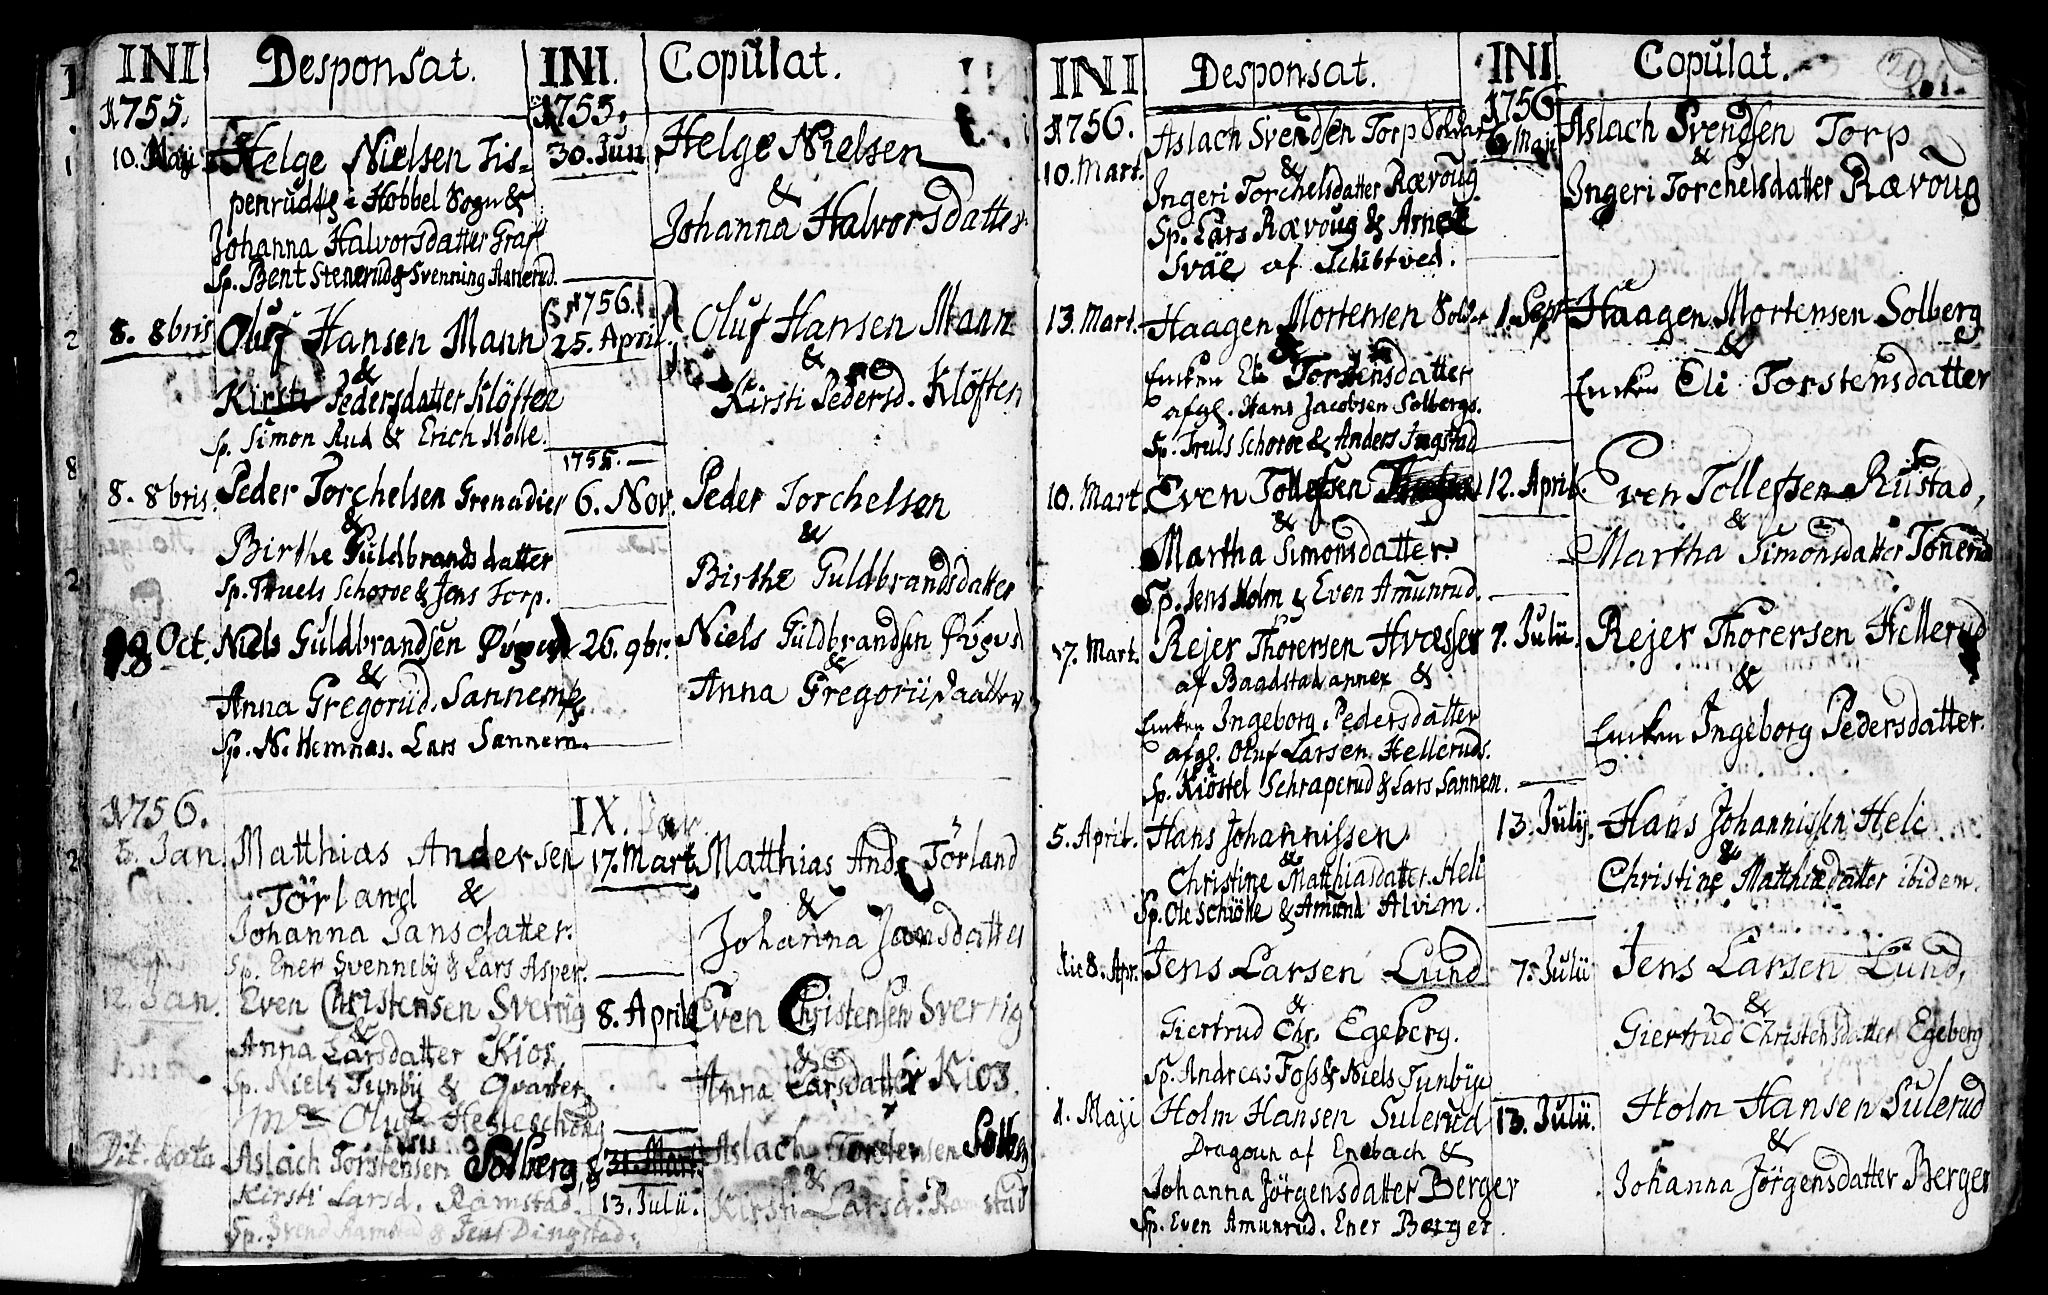 INI Desponsat. INI. Copulat.
1755. 1755.
10. Maji Helge Nielsen Tis- 30. Jun Helge Nielsen
penrud i Hobbel Sogn & &
Johanna Halvorsdatter Graf Johanna Halvorsdatter
Sp. Bent Stenerud & Svenning Aanerud.
1756.
8. 8bris Oluf Hansen Mann 25. April. Oluf Hansen Mann
& &
Kirsti Pedersdatter Klöften Kirsti Pedersd. Klöften
Sp. Simon Rud & Erich Holle.
1755.
8. 8bris. Peder Torchelsen Grenadier 6. Nov. Peder Torchelsen
& &
Birthe Guldbrandsdatter Birthe Guldbrandsdatter
Sp. Truels Schoroe & Jens Torp.
Oct. Niels Guldbrandsen 26. 9br. Niels Guldbrandsen
& &
Anna Gregorud. Sannem Anna Gregorii Daatter
Sp. N. Hemnas. Lars Sannem.
1756. IX.
5. Jan Matthias Andersen 17. Mart. Matthias And. Törland
Törland & &
Johanna Jansdatter. Johanna Jansdatter
Sp. Ener Svenneby & Lars Asper.
12. Jan. Even Christensen Sverrig 8. April Even Christensen Sverrig
& &
Anna Larsdatter Kios Anna Larsdatter Kios.
Sp. Niels Tunby & Qvarter
Mr Oluf
Dit. data Aslach Torstensen Solberg & 31. Mart. Aslach Torstensen Solberg
Kirsti Larsd. Ramstad. 13. Julii. & Kirsti Larsd. Ramstad
Sp. Svend Ramstad & Jens Dingstad.
INI Desponsat. INI Copulat. 201.
1756. 1756
10. Mart. Aslach Svendsen Torp Soldat 6 Maji Aslach Svendsen Torp
& &
Ingeri Torchelsdatter Rævoug Ingeri Torchelsdatter Rævoug
Sp. Lars Rævoug & Arne
Sväe af Schibtved.
13. Mart. Haagen Mortensen Soldat 1. Sept Haagen Mortensen Solberg
& &
Encken Eli Torstensdatter Encken Eli Torstensdatter
afgl. Hans Jacobsen Solbergs.
Sp. Truls Schoroe & Anders Ingstad
10. Mart. Even Tollefsen 12. April. Even Tollefsen Rustad,
& &
Martha Simonsdatter. Martha Simonsdatter Tonerud
Sp. Jens Holm & Even Amunrud.
17. Mart. Rejer Thorersen Hvæsser 7. Julii. Rejer Thorersen Hellerud
af Baadstad annex & &
Encken Ingeborg Pedersdatter Encken Ingeborg Pedersdatter.
afgl. Oluf Larsen Helleruds.
Sp. Kiöstel Schraperud & Lars Sannem.
5. April. Hans Johannissen 13. Julij. Hans Johannissen Heli
& &
Christine Matthiasdatter Heli Christine Matthiædatter ibidem.
Sp. Ole Schiöhe & Amund Alvim.
8. Apr. Jens Larsen Lund 7. Julii Jens Larsen Lund,
& &
Giertrud Chr. Egeberg. Giertrud Christensdatter Egeberg
Sp. Andreas Foss & Niels Tunby
1. Maji Holm Hansen Sulerud 13. Julii. Holm Hansen Sulerud
Dragoun af Enebach & &
Johanna Jörgensdatter Berger Johanna Jörgensdatter Berger
Sp. Even Amunrud. Ener Berger.